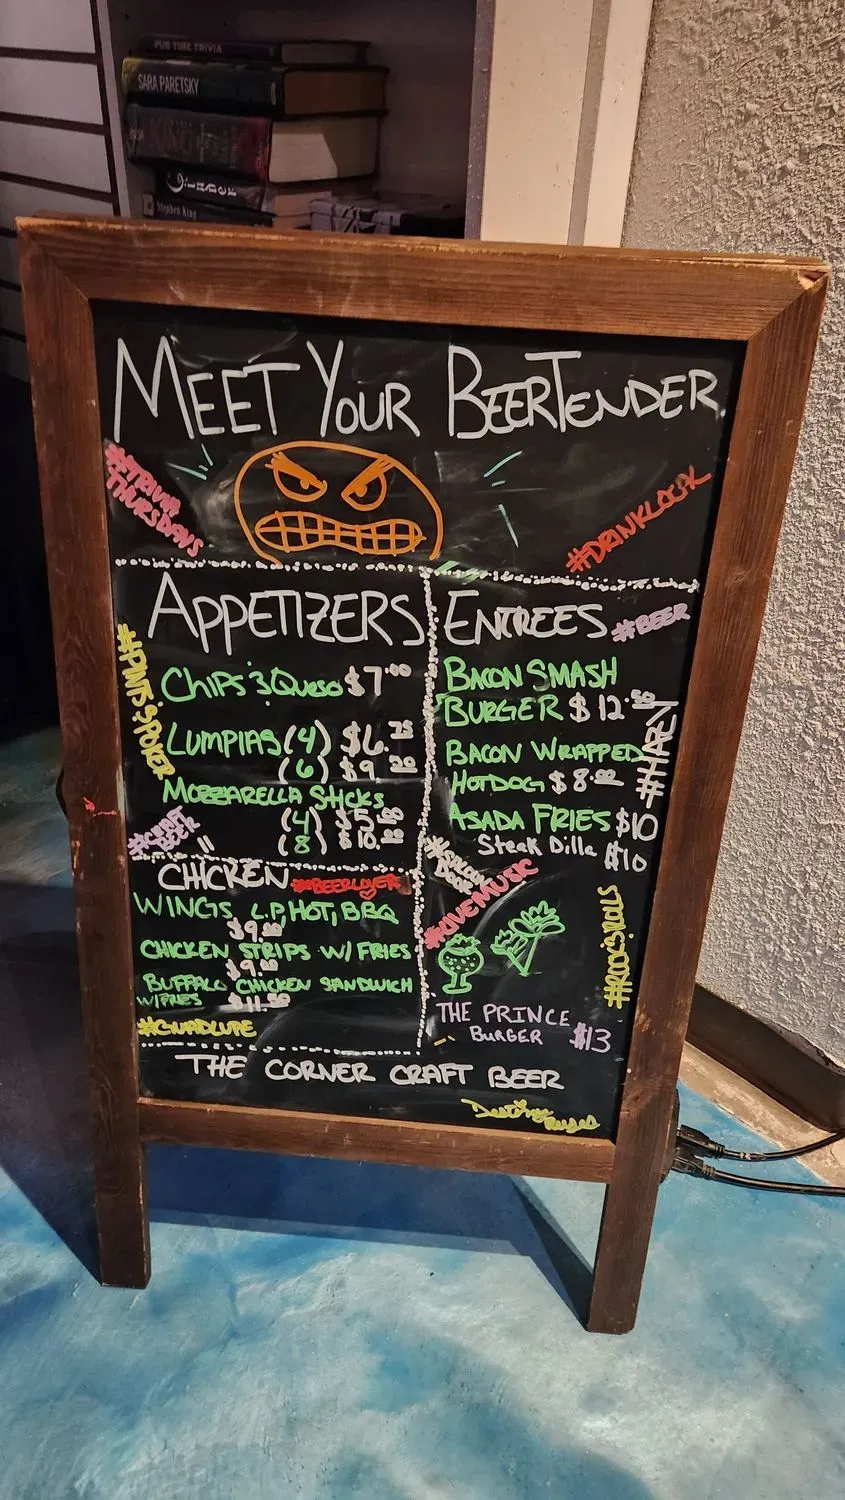 PUB TIME TRIVIA
SARA PARETSKY
KING
Stephen King
MEET YOUR BEERTENDER
#TRIVIA
THURSDAYS
#DRINKLOCAL
APPETIZERS
#PINTS&POKER
CHIPS & QUESO $7.00
LUMPIAS (4) $6.75
(6) $9.20
MOZZARELLA STICKS
(4) $5.00
(8) $10.00
#CRAFT
BEER
CHICKEN #BEERLOVER
WINGS, L.P, HOT, BBQ
$9.00
CHICKEN STRIPS W/ FRIES
$9.00
BUFFALO CHICKEN SANDWICH
W/FRIES $11.50
#GUADLUPE
ENTREES #BEER
BACON SMASH
BURGER $12.50
BACON WRAPPED
HOTDOG $8.00
ASADA FRIES $10
Steak Dilla $10
#LIVEMUSIC
#ROCK&ROLLS
THE PRINCE
BURGER $13
THE CORNER CRAFT BEER